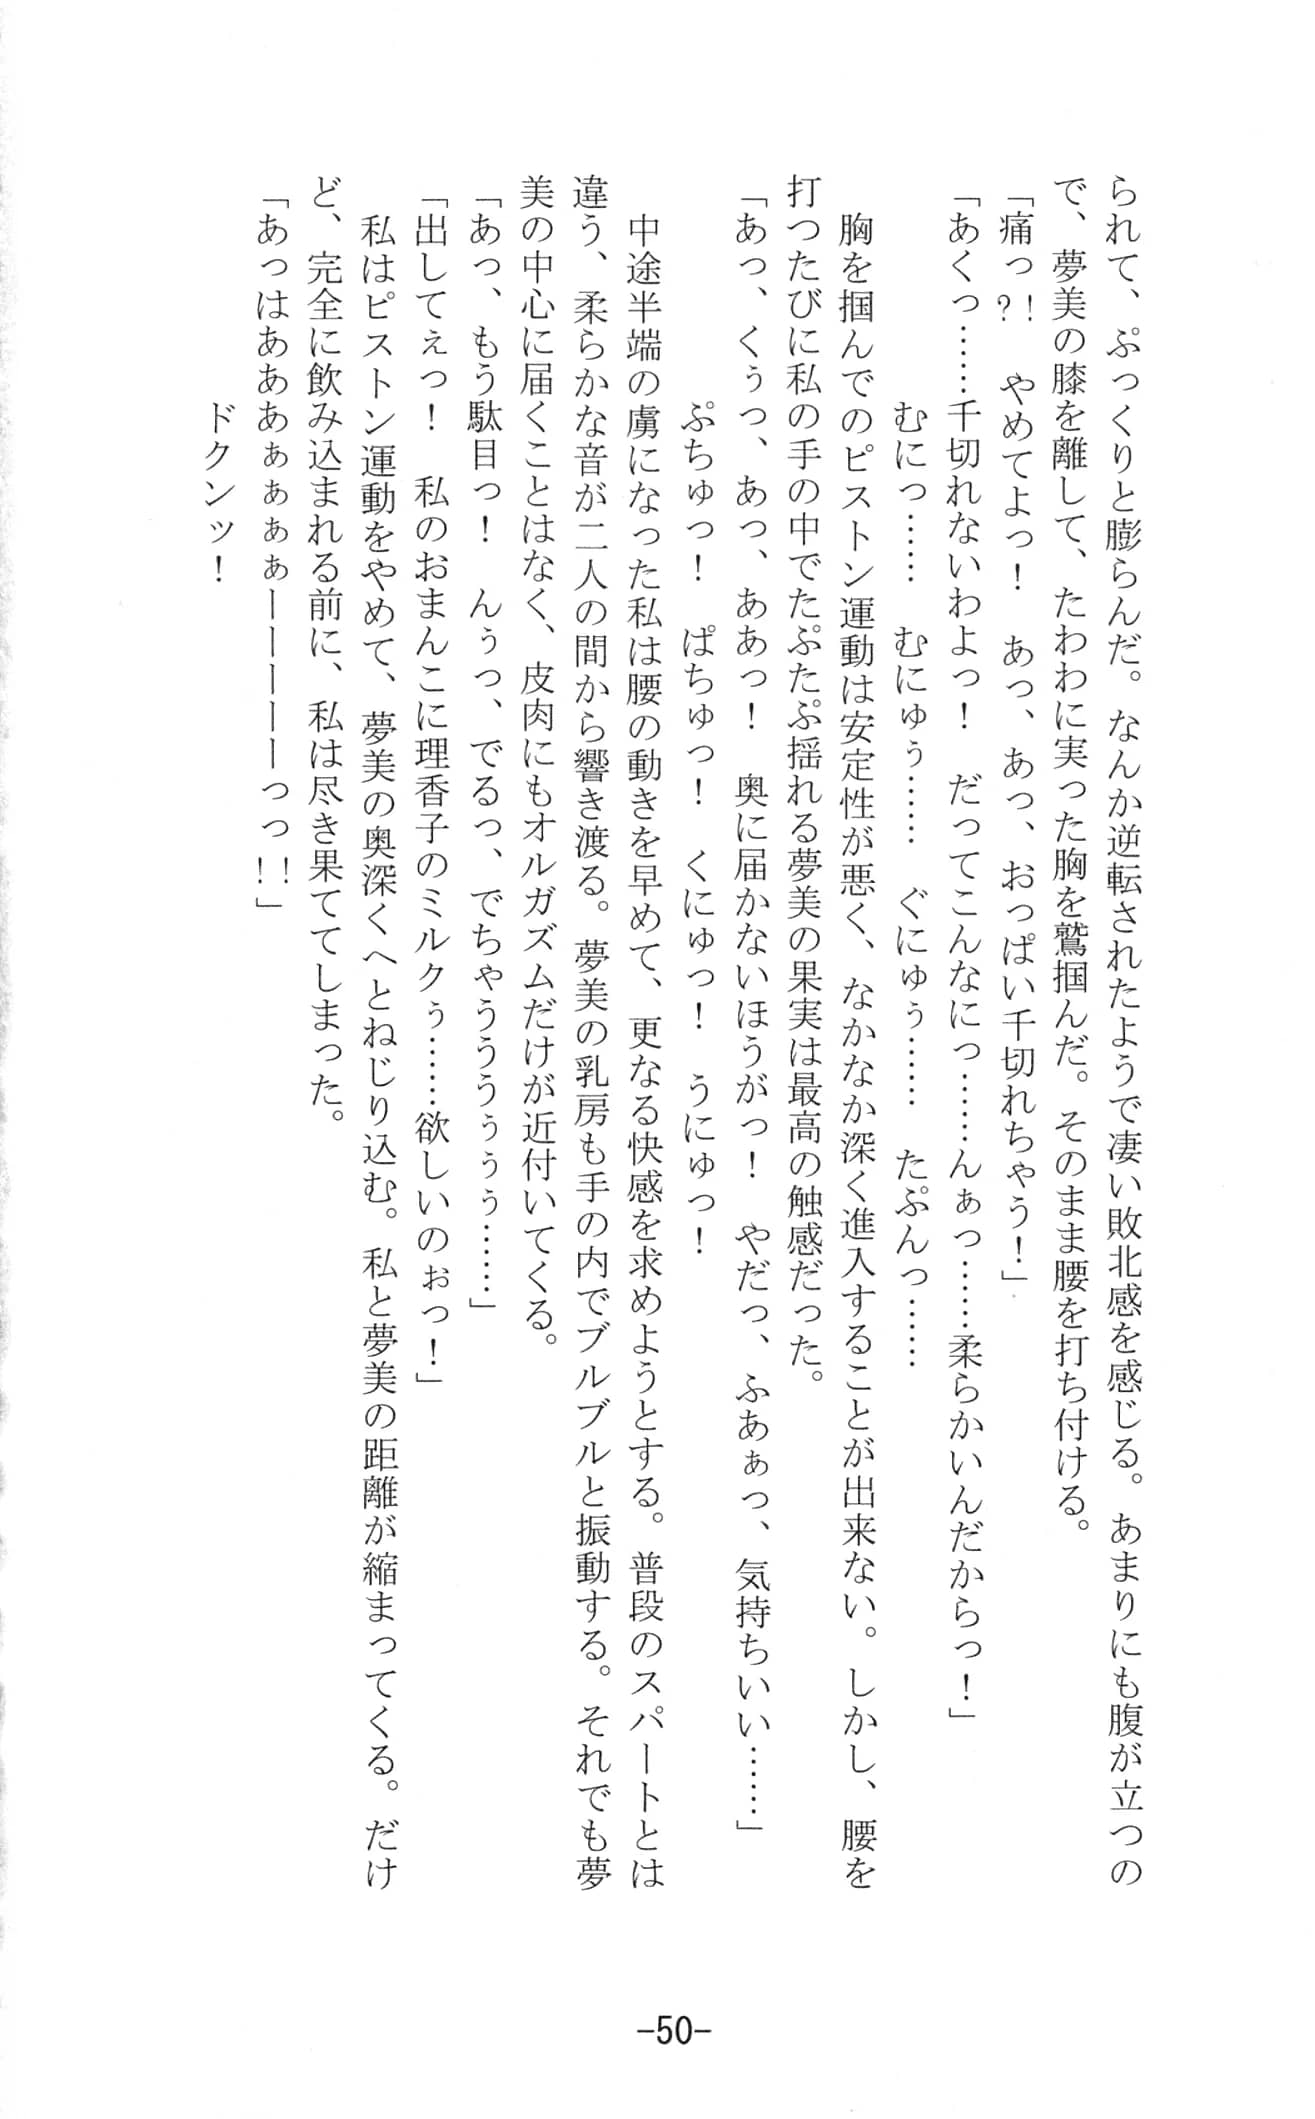 られて、ぷっくりと膨らんだ。なんか逆転されたようで凄い敗北感を感じる。あまりにも腹が立つの
で、夢美の膝を離して、たわわに実った胸を鷲掴んだ。そのまま腰を打ち付ける。
「痛っ?!　やめてよっ！　あっ、あっ、おっぱい千切れちゃう！」
「あくっ……千切れないわよっ！　だってこんなにっ……んぁっ……柔らかいんだからっ！」
むにっ……　むにゅぅ……　ぐにゅぅ……　たぷんっ……
胸を掴んでのピストン運動は安定性が悪く、なかなか深く進入することが出来ない。しかし、腰を
打つたびに私の手の中でたぷたぷ揺れる夢美の果実は最高の触感だった。
「あっ、くぅっ、あっ、ああっ！　奥に届かないほうがっ！　やだっ、ふあぁっ、気持ちいい……」
ぷちゅっ！　ぱちゅっ！　くにゅっ！　うにゅっ！
中途半端の虜になった私は腰の動きを早めて、更なる快感を求めようとする。普段のスパートとは
違う、柔らかな音が二人の間から響き渡る。夢美の乳房も手の内でブルブルと振動する。それでも夢
美の中心に届くことはなく、皮肉にもオルガズムだけが近付いてくる。
「あっ、もう駄目っ！　んぅっ、でるっ、でちゃうううぅぅぅ……」
「出してぇっ！　私のおまんこに理香子のミルクぅ……欲しいのぉっ！」
私はピストン運動をやめて、夢美の奥深くへとねじり込む。私と夢美の距離が縮まってくる。だけ
ど、完全に飲み込まれる前に、私は尽き果ててしまった。
「あっはあああぁぁぁーーーーーっっ!!」
ドクンッ！
-50-